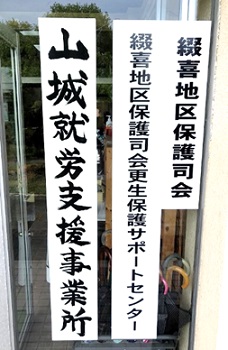 綴喜地区保護司会
綴喜地区保護司会更生保護サポートセンター
山城就労支援事業所